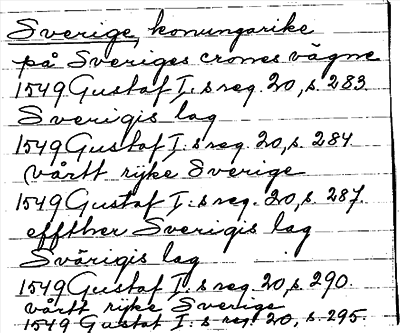 Sverige, konungarike
på Sveriges crones vägne
1549 Gustaf I:s reg. 20, s. 283.
Sverigis lag
1549 Gustaf I:s reg. 20, s. 284.
vårtt rijke Sverige
1549 Gustaf I:s reg. 20, s. 287.
effther Sverigis lag
Svärigis lag
1549 Gustaf I:s reg. 20, s. 290.
vårtt rijke Sverige
1549 Gustaf I:s reg. 20, s. 295.